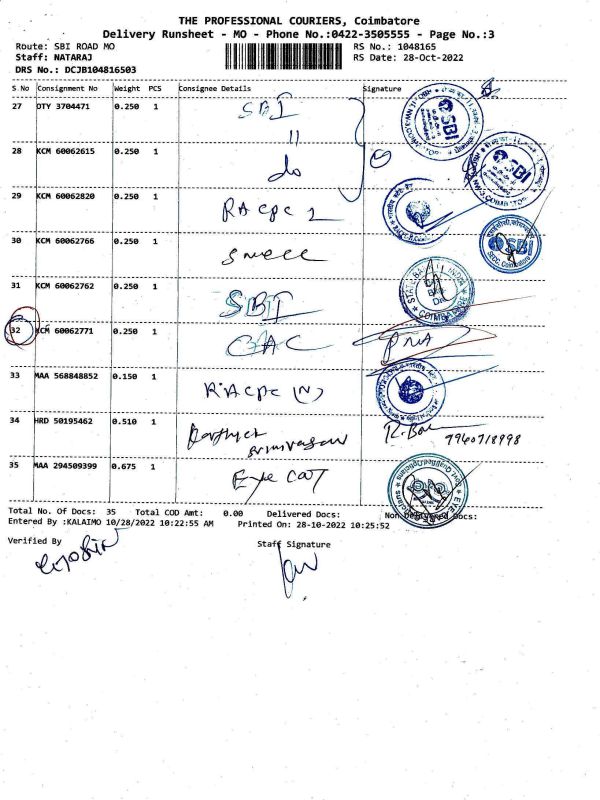 THE PROFESSIONAL COURIERS, Coimbatore
Delivery Runsheet - MO - Phone No.:0422-3505555 - Page No.:3
Route: SBI ROAD MO RS No.: 1048165
Staff: NATARAJ RS Date: 28-Oct-2022
DRS No.: DCJB104816503
S No Consignment No Weight PCS Consignee Details Signature
27 DTY 3704471 0.250 1 SBI
28 KCM 60062615 0.250 1 do
29 KCM 60062820 0.250 1 RACPC 1
30 KCM 60062766 0.250 1 smecc
31 KCM 60062762 0.250 1 SBI
32 KCM 60062771 0.250 1 CAC
33 MAA 568848852 0.150 1 RACPC (N)
34 HRD 50195462 0.510 1 7940718998
35 MAA 294509399 0.675 1 Eye CAT
Total No. Of Docs: 35 Total COD Amt: 0.00 Delivered Docs: Non Delivered Docs:
Entered By :KALAIMO 10/28/2022 10:22:55 AM Printed On: 28-10-2022 10:25:52
Verified By Staff Signature
SBI
SBI
SBI